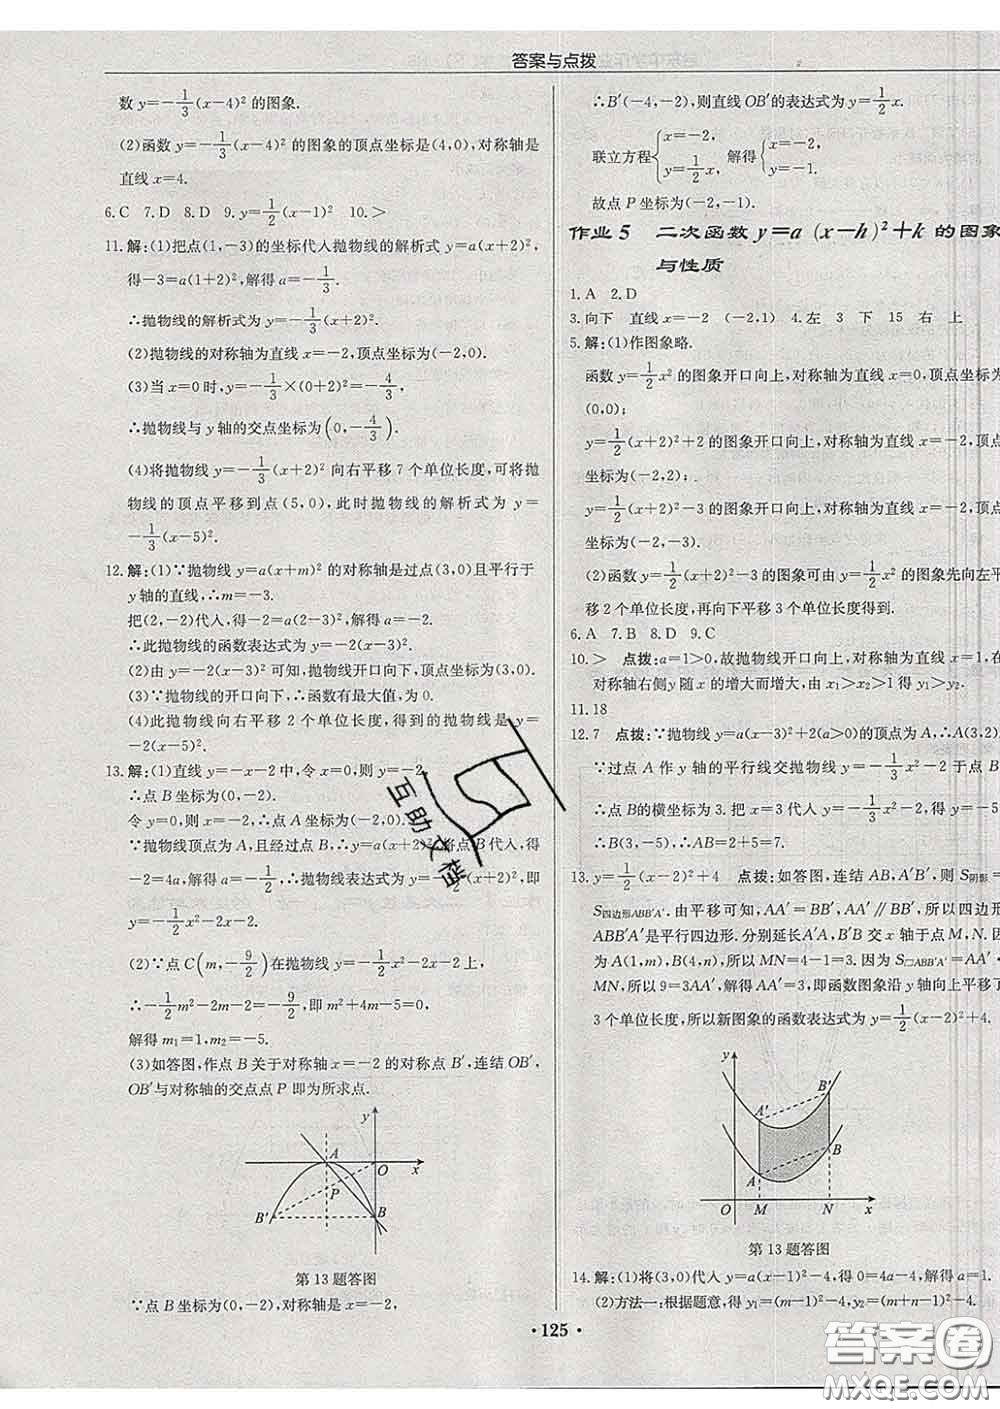 答案与点拨
数 y=-1/3(x-4)² 的图象.
(2)函数 y=-1/3(x-4)² 的图象的顶点坐标是(4,0),对称轴是
直线 x=4.
6.C 7.D 8.D 9.y=1/2(x-1)² 10.>
11.解:(1)把点(1,-3)的坐标代入抛物线的解析式 y=a(x+2)²,
得-3=a(1+2)²,解得 a=-1/3.
∴抛物线的解析式为 y=-1/3(x+2)².
(2)抛物线的对称轴为直线 x=-2,顶点坐标为(-2,0).
(3)当 x=0 时,y=-1/3×(0+2)²=-4/3,
∴抛物线与 y 轴的交点坐标为(0,-4/3).
(4)将抛物线 y=-1/3(x+2)² 向右平移 7 个单位长度,可将抛
物线的顶点平移到点(5,0),此时抛物线的解析式为 y=
-1/3(x-5)².
12.解:(1)∵抛物线 y=a(x+m)² 的对称轴是过点(3,0)且平行于
y 轴的直线,∴m=-3.
把(2,-2)代入,得-2=a(2-3)²,解得 a=-2.
∴此抛物线的函数表达式为 y=-2(x-3)².
(2)由 y=-2(x-3)² 可知,抛物线开口向下,顶点坐标为(3,0).
(3)∵抛物线的开口向下,∴函数有最大值,为 0.
(4)此抛物线向右平移 2 个单位长度,得到的抛物线是 y=
-2(x-5)².
13.解:(1)直线 y=-x-2 中,令 x=0,则 y=-2,
∴点 B 坐标为(0,-2).
令 y=0,则 x=-2,∴点 A 坐标为(-2,0).
∵抛物线顶点为 A,且经过点 B,∴y=a(x+2)²,将点 B 代入,得
-2=4a,解得 a=-1/2,∴抛物线表达式为 y=-1/2(x+2)²,即
y=-1/2x²-2x-2.
(2)∵点 C(m,-9/2)在抛物线 y=-1/2x²-2x-2 上,
∴-1/2m²-2m-2=-9/2,即 m²+4m-5=0,
解得 m₁=1,m₂=-5.
(3)如答图,作点 B 关于对称轴 x=-2 的对称点 B′,连结 OB′,
OB′与对称轴的交点点 P 即为所求点.
y
A
O
x
P
B′
B
第 13 题答图
∵点 B 坐标为(0,-2),对称轴是 x=-2,
∴B′(-4,-2),则直线 OB′的表达式为 y=1/2x.
联立方程{x=-2, y=1/2x, 解得{x=-2, y=-1.
故点 P 坐标为(-2,-1).
作业 5 二次函数 y=a(x-h)²+k 的图象
与性质
1.A 2.D
3.向下 直线 x=-2 (-2,1) 4.左 3 下 15 右 上
5.解:(1)作图象略.
函数 y=1/2x² 的图象开口向上,对称轴为直线 x=0,顶点坐标为
(0,0);
y=1/2(x+2)²+2 的图象开口向上,对称轴为直线 x=-2,顶点
坐标为(-2,2);
y=1/2(x+2)²-3 的图象开口向上,对称轴为直线 x=-2,顶点
坐标为(-2,-3).
(2)函数 y=1/2(x+2)²-3 的图象可由 y=1/2x² 的图象先向左平
移 2 个单位长度,再向下平移 3 个单位长度得到.
6.A 7.B 8.D 9.C
10.> 点拨:a=1>0,故抛物线开口向上,对称轴为直线 x=1,在
对称轴右侧 y 随 x 的增大而增大,由 x₁>x₂>1 得 y₁>y₂.
11.18
12.7 点拨:∵抛物线 y=a(x-3)²+2(a>0)的顶点为 A,∴A(3,2).
∵过点 A 作 y 轴的平行线交抛物线 y=-1/3x²-2 于点 B
∴点 B的横坐标为 3.把 x=3 代入 y=-1/3x²-2,得 y=-5
∴B(3,-5),∴AB=2+5=7.
13.y=1/2(x-2)²+4 点拨:如答图,连结 AB,A′B′,则 S阴影=
S四边形ABB′A′.由平移可知,AA′=BB′,AA′∥BB′,所以四边形
ABB′A′是平行四边形.分别延长 A′A,B′B 交 x 轴于点 M,N.因
为 A(1,m),B(4,n),所以 MN=4-1=3.因为 S▱ABB′A′=AA′·
MN,所以 9=3AA′,解得 AA′=3,即函数图象沿 y 轴向上平移了
3 个单位长度,所以新图象的函数表达式为 y=1/2(x-2)²+4.
y
B′
A′
B
A
O
M
N
x
第 13 题答图
14.解:(1)将(3,0)代入 y=a(x-1)²-4,得 0=4a-4,解得 a=1.
(2)方法一:根据题意,得 y₁=(m-1)²-4,y₂=(m+n-1)²-4.
• 125 •
互助文档
答案圈
MXQE.COM